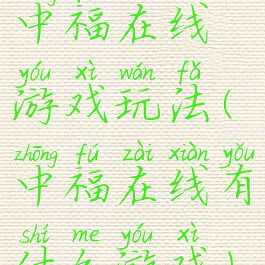 中福在线
yóu xì wán fǎ
游戏玩法(
zhōng fú zài xiàn yǒu
中福在线有
shí me yóu xì
什么游戏)